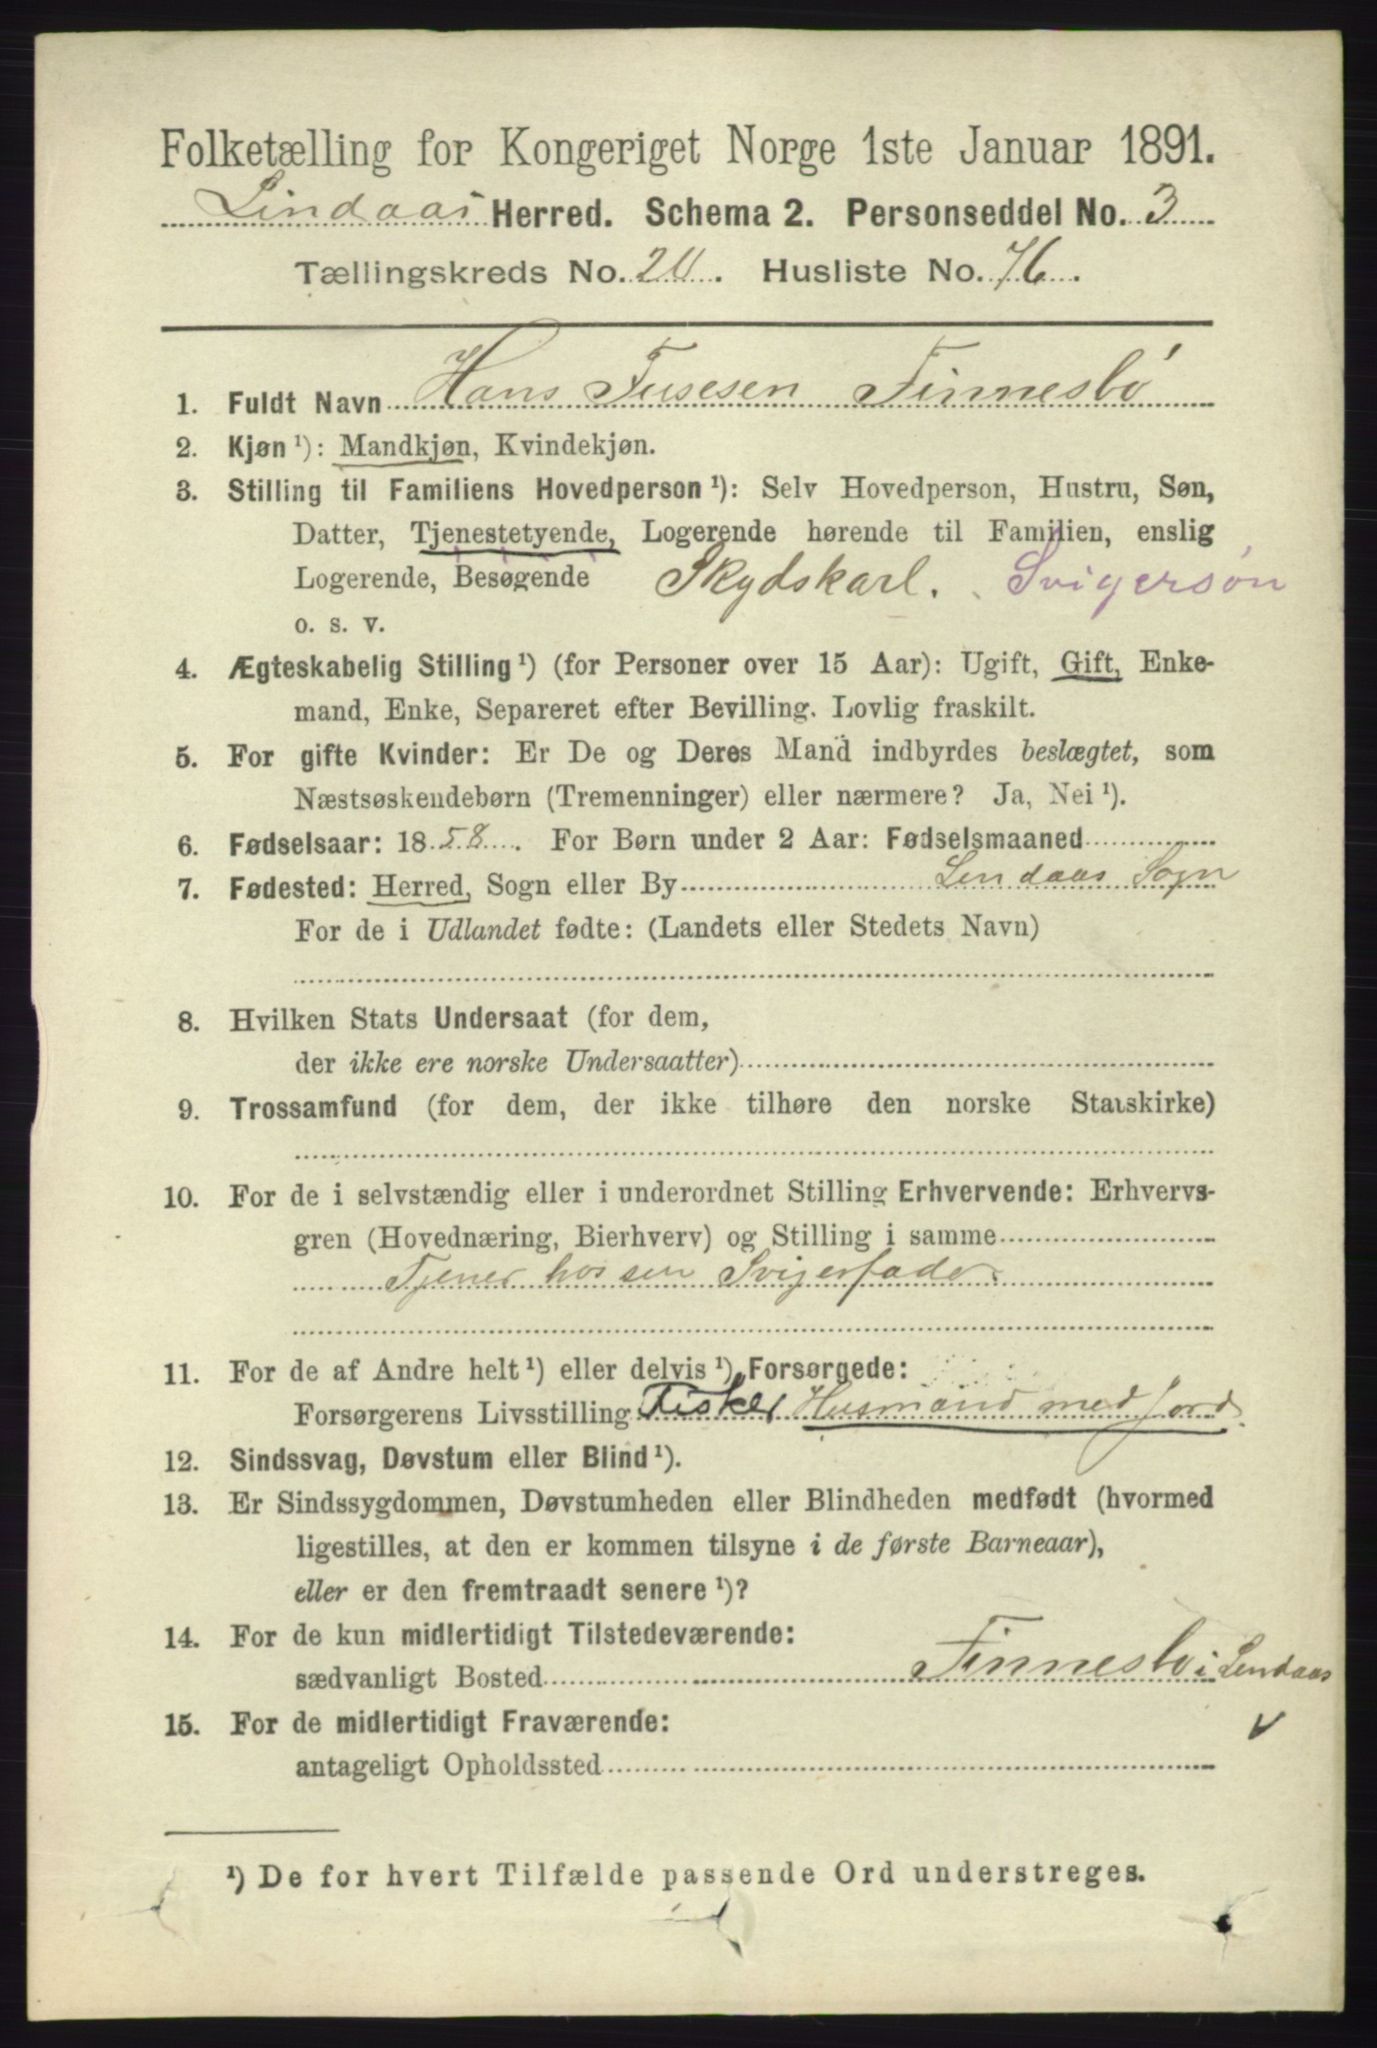 Folketælling for Kongeriget Norge 1ste Januar 1891.
Lindaas Herred. Schema 2. Personseddel No. 3
Tællingskreds No. 20. Husliste No. 76.
1. Fuldt Navn Hans Fusesen Finnesbö
2. Kjøn ¹): Mandkjøn, Kvindekjøn.
3. Stilling til Familiens Hovedperson ¹): Selv Hovedperson, Hustru, Søn,
Datter, Tjenestetyende, Logerende hørende til Familien, enslig
Logerende, Besøgende Skydskarl. Svigersøn
o. s. v.
4. Ægteskabelig Stilling ¹) (for Personer over 15 Aar): Ugift, Gift, Enke-
mand, Enke, Separeret efter Bevilling. Lovlig fraskilt.
5. For gifte Kvinder: Er De og Deres Mand indbyrdes beslægtet, som
Næstsøskendebørn (Tremenninger) eller nærmere? Ja, Nei ¹).
6. Fødselsaar: 1858. For Børn under 2 Aar: Fødselsmaaned
7. Fødested: Herred, Sogn eller By Lendaas Sogn
For de i Udlandet fødte: (Landets eller Stedets Navn)
8. Hvilken Stats Undersaat (for dem,
der ikke ere norske Undersaatter)
9. Trossamfund (for dem, der ikke tilhøre den norske Statskirke)
10. For de i selvstændig eller i underordnet Stilling Erhvervende: Erhvervs-
gren (Hovednæring, Bierhverv) og Stilling i samme
Tjener hos sen Svigerfader
11. For de af Andre helt ¹) eller delvis ¹) Forsørgede:
Forsørgerens Livsstilling Fisker Husmand med Jord
12. Sindssvag, Døvstum eller Blind ¹).
13. Er Sindssygdommen, Døvstumheden eller Blindheden medfødt (hvormed
ligestilles, at den er kommen tilsyne i de første Barneaar),
eller er den fremtraadt senere ¹)?
14. For de kun midlertidigt Tilstedeværende:
sædvanligt Bosted Finnesbö i Lendaas
15. For de midlertidigt Fraværende:
antageligt Opholdssted
¹) De for hvert Tilfælde passende Ord understreges.